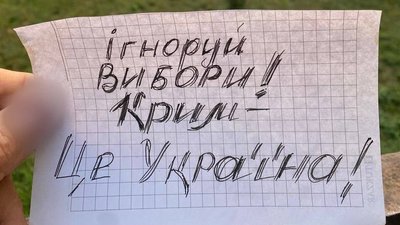 ігноруй
ВИБОРИ!
Крим –
Це Україна!